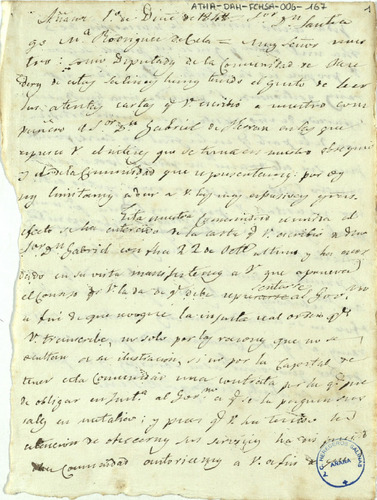 ATHA-DAH-FCHSA-006-167
1
Añana 1º de Dice de 1848 Sor Dn Santia
go Mª Rodriguez de Cela = Muy Señor nues
tro: como Diputados de la Comunidad de Here
deros de estas salinas hemos tenido el gusto de leer
las atentas cartas que V. escribió a nuestro com
pañero el Sor Dn Gabriel de Herran en las que
expresa V. el interes que se toma en nuestro obsequio
y el de la Comunidad que representamos; por
limitamos a dar a V. las mas expresivas gracias.
Esta nuestra Comunidad reunida al
efecto se ha enterado de la carta qe V. escribio a dho
Sor Dn Gabriel con fha 22 de Octe ultimo y nos man
dado en su vista manifestemos a V. que aprueva
el Consejo de V. la de qe debe representarse al Gov.no
a fin de que revoque la injusta real orden qe
V. transcribe, no solo por las razones que no se
ocultan a su ilustracion, si no por la especial de
tener esta Comunidad una contrata por la qe pue
de obligar en justª al Gov.no a qe se le paguen sus
sales en metalico; y pues qe V. ha tenido la
atencion de ofrecernos sus servicios ha
Comunidad autorizarnos a V. a fin de
C. HERREROS SALINAS
AÑANA